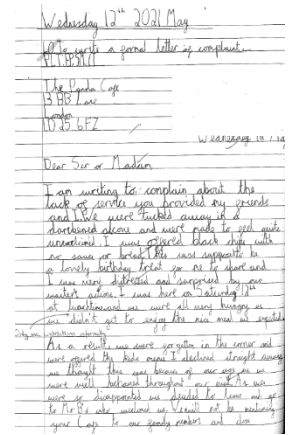 Wednesday 12th 2021 May
to write a formal letter of complaint
The Panda Cafe
3 BB Lane
London
Dear Sir or Madam
I am writing to complain about the
lack of service you provided my friends
and I. We were tucked away in a
darkened alcove and were made to feel quite
unwelcomed. I was offered black chips with
no sauce or bread. This was supposed to be
a lovely birthday treat for me to share and
I was very distressed and surprised by our
waiter's actions. I was here on Saturday
at lunchtime and we were all very hungry as
we didn't get to enjoy the nice meal we expected
As a result we were forgotten in the corner and
were offered the kids menu I declined straight away
we thought this was because of our age as we
were well behaved throughout our visit. As we
were so disappointed we decided to leave and go
to Mr B's who welcomed us. I will not be mentioning
your Cafe to our family members and